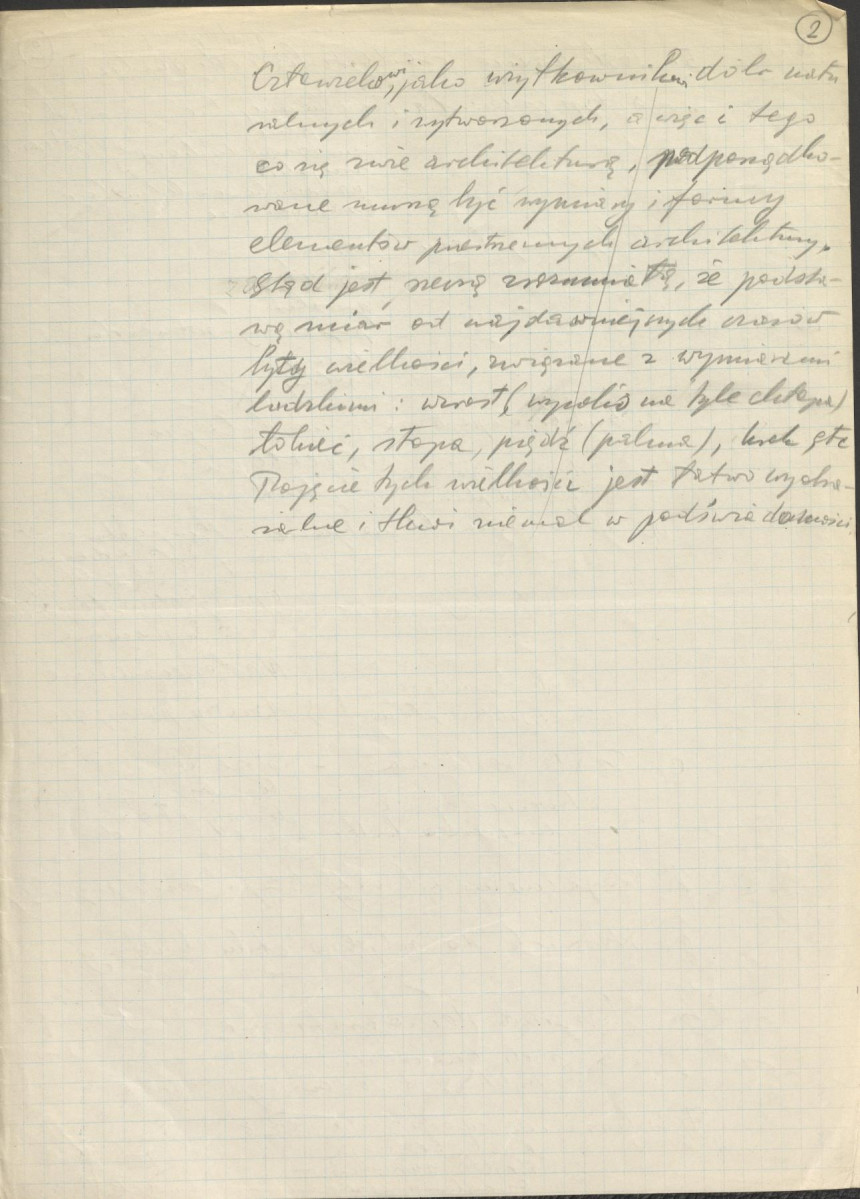 2
Człowiekowi, jako użytkownikowi dóbr natu
ralnych i wytworzonych, a więc i tego
co się zwie architekturą, podporządko-
wane muszą być wymiary i formy
elementów przestrzennych architektury.
Stąd jest rzeczą zrozumiałą, że podsta-
wą miar od najdawniejszych czasów
były wielkości, związane z wymiarami
ludzkimi: wzrost (wysokić na tyle chłopa)
łokieć, stopa, piędź (palma), krok
Pojęcie tych wielkości jest łatwo wyobra-
żalne i tkwi niemal w podświadomości